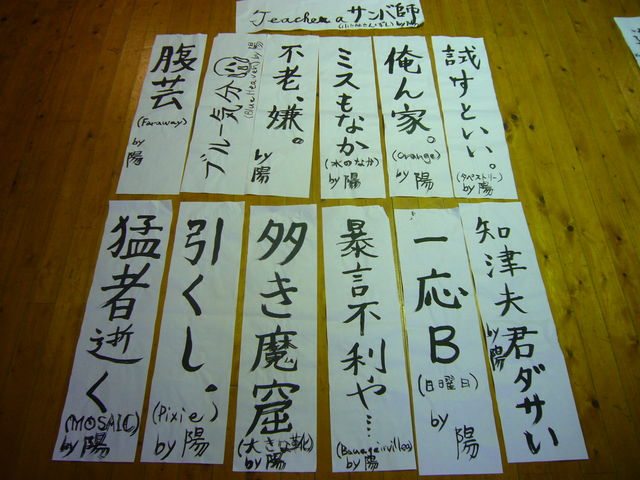 Teacher a サンバ師
by 陽
試すといい。
(タペストリー)
by 陽
俺ん家。
(orange)
by 陽
ミスもなか
(水のなか)
by 陽
不老、嫌。
by 陽
ブルー気分
(Blue Heaven) by 陽
腹芸
(Faraway)
by 陽
知津夫君ダサい
by 陽
一応B
(日曜日)
by 陽
暴言不利や…
by 陽
多き魔窟
by 陽
引くし。
(Pixie)
by 陽
猛者逝く
(MOSAIC)
by 陽